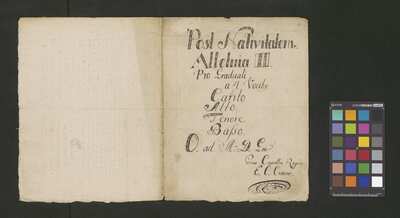 Post Nativitatem
Alleluia III
Pro Graduali
a 4 Vocib:
Canto
Alto,
Tenore
Basso.
O. ad M. D. G.